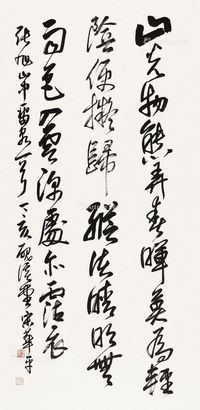 山光物態弄春暉莫為輕
陰便擬歸縱使晴明無
雨色入雲深處亦霑衣
張旭山中留客一首丁亥